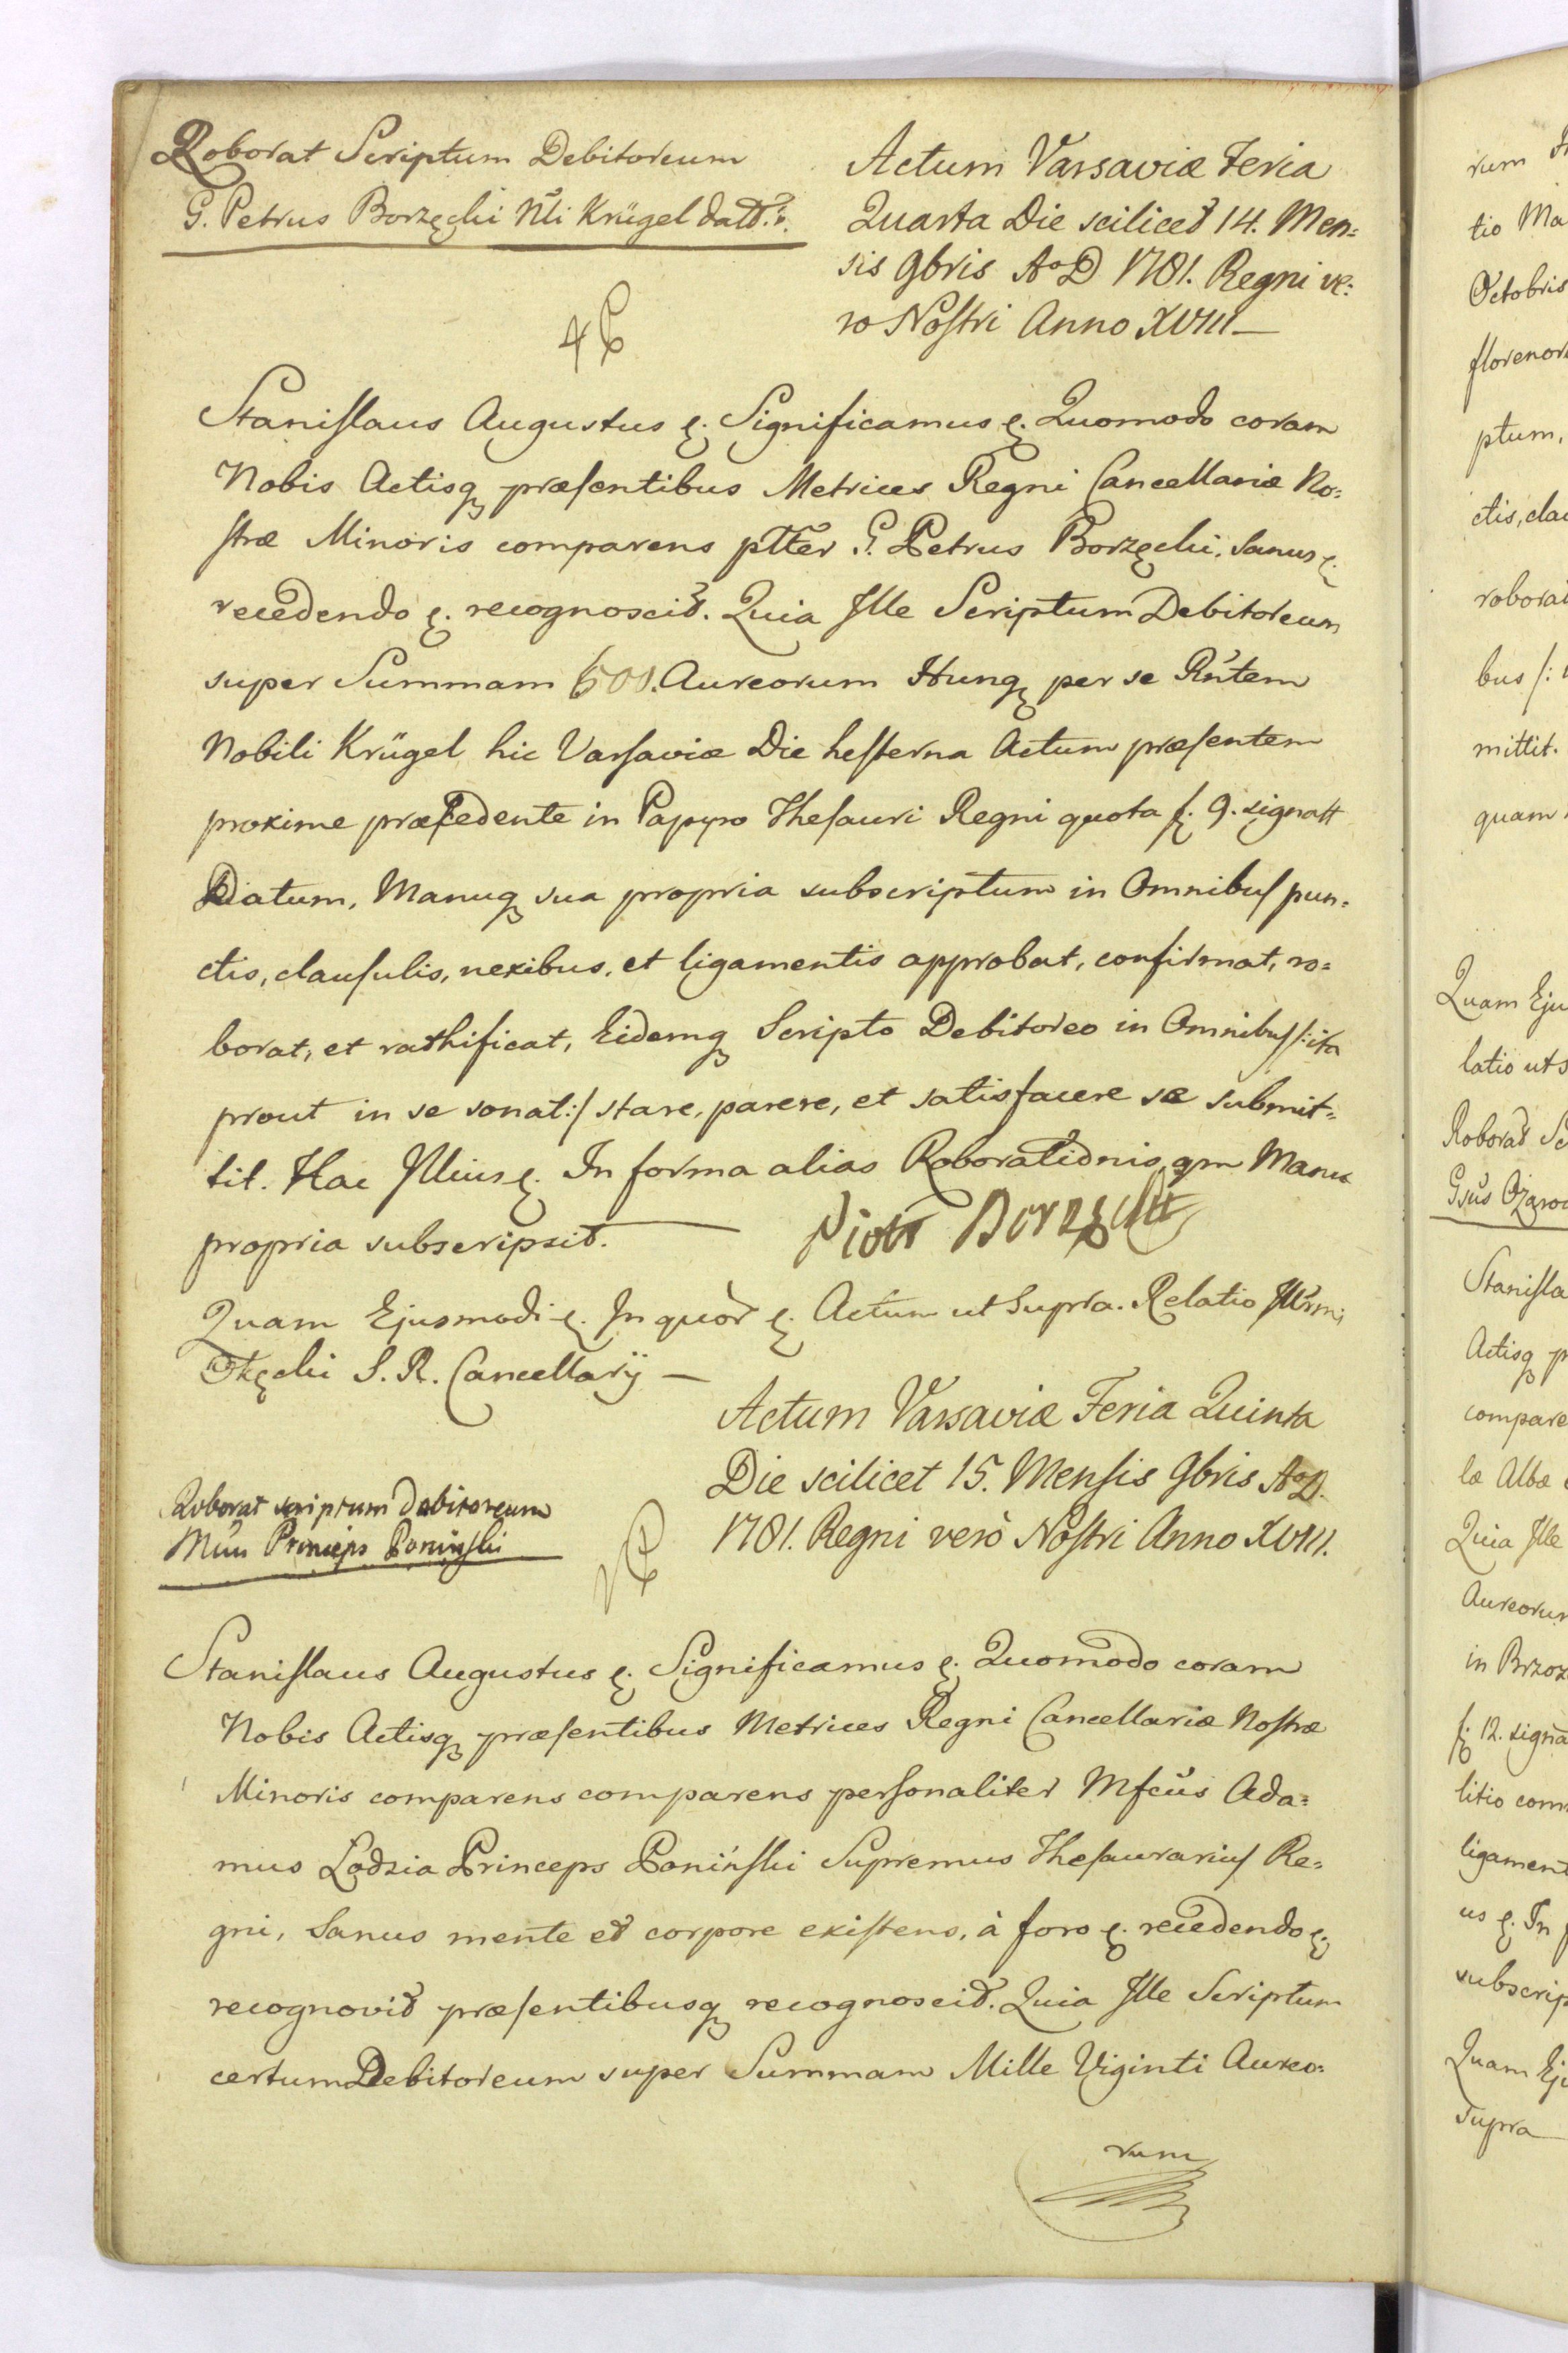 Roborat Scriptum Debitoreum
G. Petrus Borzęcki Nli Krügel datt.
Actum Varsaviæ Feria
Quarta Die scilicet 14. Men=
sis 9bris AoD 1781. Regni ve=
ro Noſtri Anno XVIII—
Staniſlaus Augustus ę. Significamus ę. Quomodo coram
Nobis Actisq præſentibus Metrices Regni Cancellariæ No=
ſtræ Minoris comparens pltter G. Petrus Borzęcki. Sanus ę.
recedendo ę. recognoscit. Quia Ille Scriptum Debitoreum
super Summam 600. Aureorum Hung per se Rntem
Nobili Krügel hic Varſaviæ Die heſterna Actum præſentem
proxime præcedente in Papyro Theſauri Regni quota f. 9. signatt
Datum, Manuq sua propria subscriptum in Omnibuſ pun=
ctis, clauſulis, nexibus, et ligamentis approbat, confirmat, ro=
borat, et rathificat, Eidemq Scripto Debitoreo in Omnibuſ /:ita
prout in se sonat:/ stare, parere, et satisfacere se submit=
tit. Hac Illius ę. In forma alias Roborationis, qm Manu
propria subscripsit. — Piotr Borzęcki
Quam Ejusmodi ę. In quor ę. Actum ut Supra. Relatio Illrmi
Okęcki S. R. Cancellarij —
Actum Varsaviæ Feria Quinta
Die scilicet 15. Menſis 9bris AoD.
1781. Regni verò Noſtri Anno XVIII.
Roborat scriptum debitoreum
Princeps Poninſki
Staniſlaus Augustus ę. Significamus ę. Quomodo coram
Nobis Actisq præſentibus Metrices Regni Cancellariæ Noſtræ
Minoris comparens comparens perſonaliter Mfcus Ada=
mus Lodzia Princeps Poninſki Supremus Theſaurariuſ Re=
gni, Sanus mente et corpore exiſtens, à foro ę. recedendo ę.
recognovit præſentibusq recognoscit. Quia Ille Scriptum
certum Debitoreum super Summam Mille Viginti Aureo=
rum
rum
tio Ma
Octobris
florenor
ptum,
ctis, clau
roborat
bus /:
mittit.
quam
Quam Eju
latio ut s
Roborat Sc
Staniſla
Actisq p
compare
læ Albæ
Quia Ille
Aureorum
in Brzoz
f. 12. signa
litio com
ligament
us ę. In f
subscrip
Quam Eju
Supra